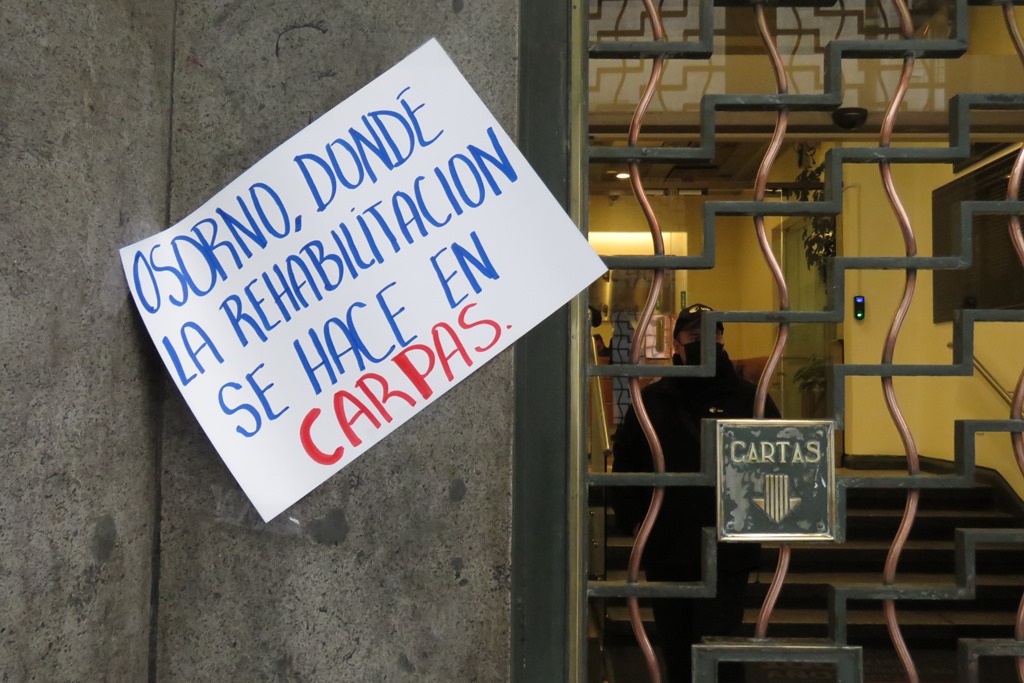 OSORNO, DONDE
LA REHABILITACION
SE HACE EN
CARPAS.
CARTAS